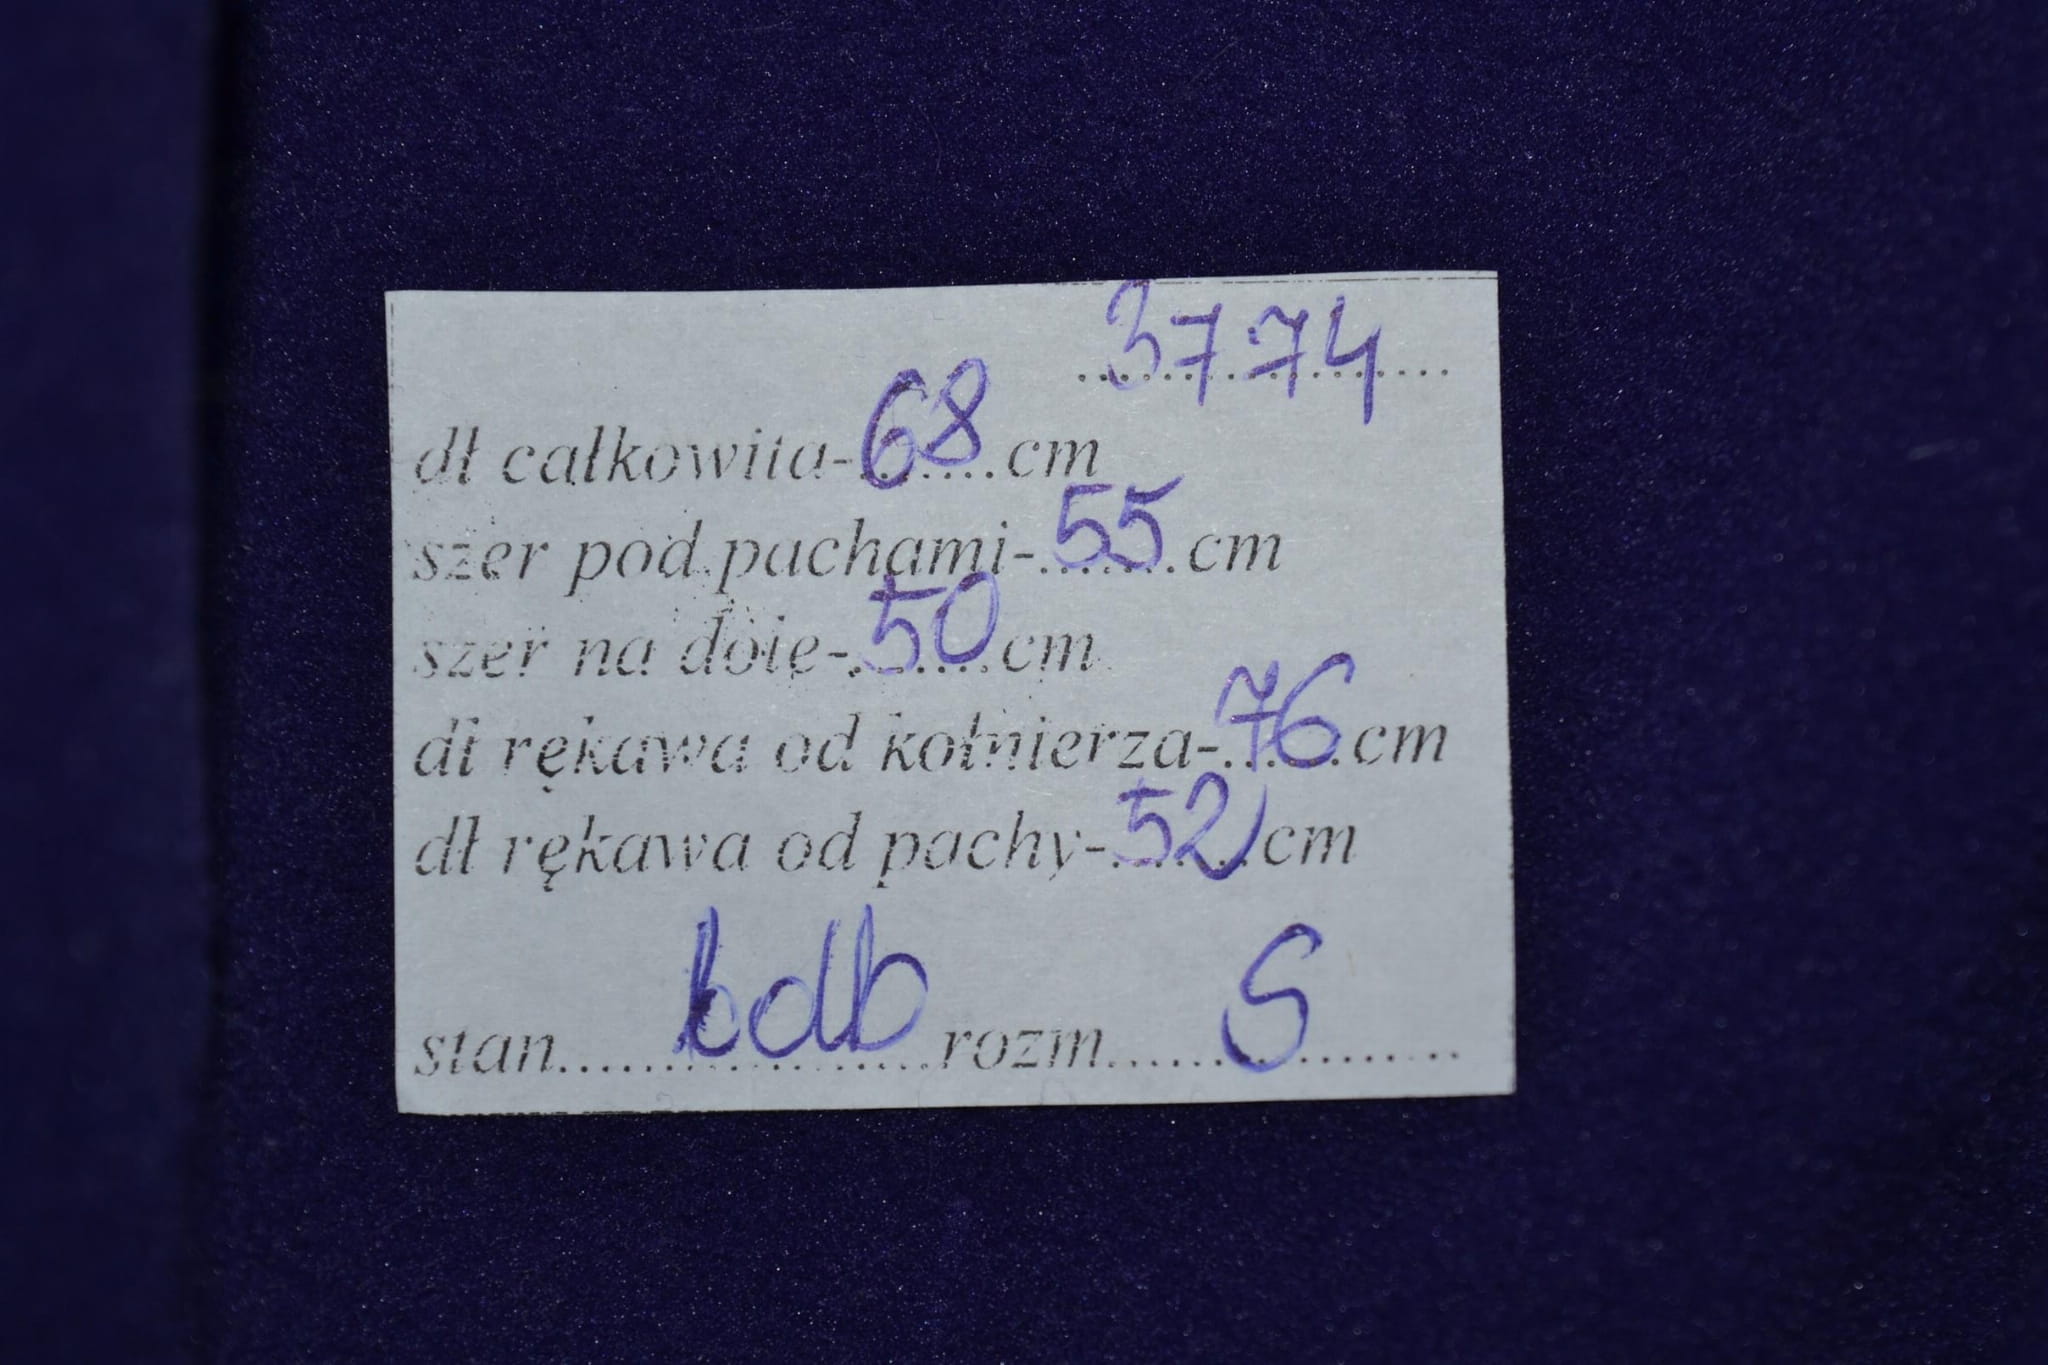 3774
dł całkowita-68cm
szer pod pachami-55cm
szer na dole-50cm
dł rękawa od kołnierza-76cm
dł rękawa od pachy-52cm
stan.....bdb.....rozm.....S.....